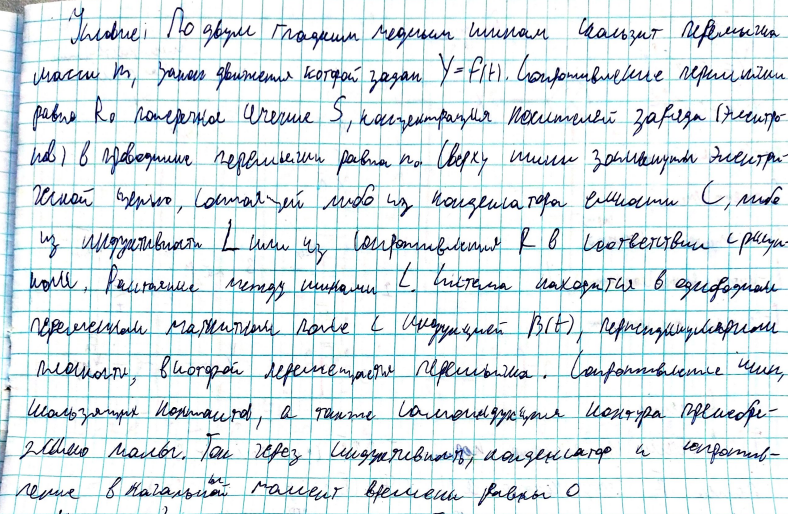 Условие: По двум гладким медным шинам скользит перемычка
массы m, закон движения которой задан Y=f(t). Сопротивление перемычки
равно R₀ поперечное сечение S, концентрация носителей заряда (электро-
нов) в проводнике перемычки равна n₀. Сверху шины замкнуты электри-
ческой цепью, состоящей либо из конденсатора емкости C, либо
из индуктивности L или из сопротивления R в соответствии с рисун-
ком. Расстояние между шинами l. Система находится в однородном
переменном магнитном поле с индукцией B(t), перпендикулярном
плоскости, в которой перемещается перемычка. Сопротивление шин,
скользящих контактов, а также самоиндукция контура пренебре-
жимо малы. Ток через индуктивность, конденсатор и сопротив-
ление в начальный момент времени равны 0